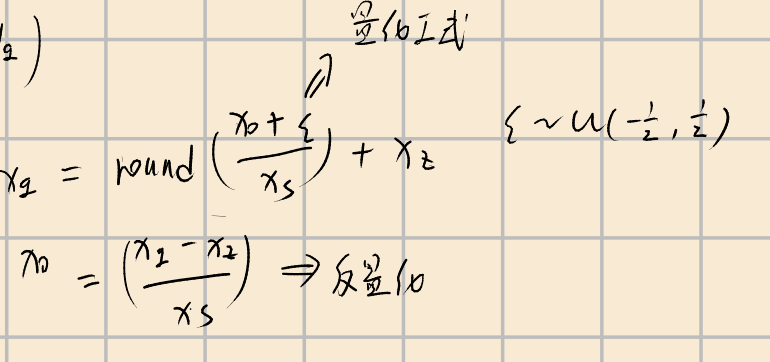 量化公式
q)
x_q = round ( (x_0 + ξ) / x_s ) + x_z    ξ ~ U(-1/2, 1/2)
x_0 = ( (x_q - x_z) / x_s ) ⇒ 反量化